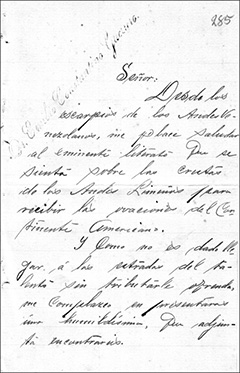 285
Señor:
Desde los
escarpios de los Andes Ve-
nezolanos, me place saludar
al eminente literato que se
sienta sobre las crestas
de los Andes Limeños para
recibir las ovaciones del Con-
tinente Americano.
Y Como no es dado lle-
gar á las estradas del ta-
lento sin tributarle ofrenda,
me complazco en presentaros
una humildísima, que adjun-
ta encontraréis.